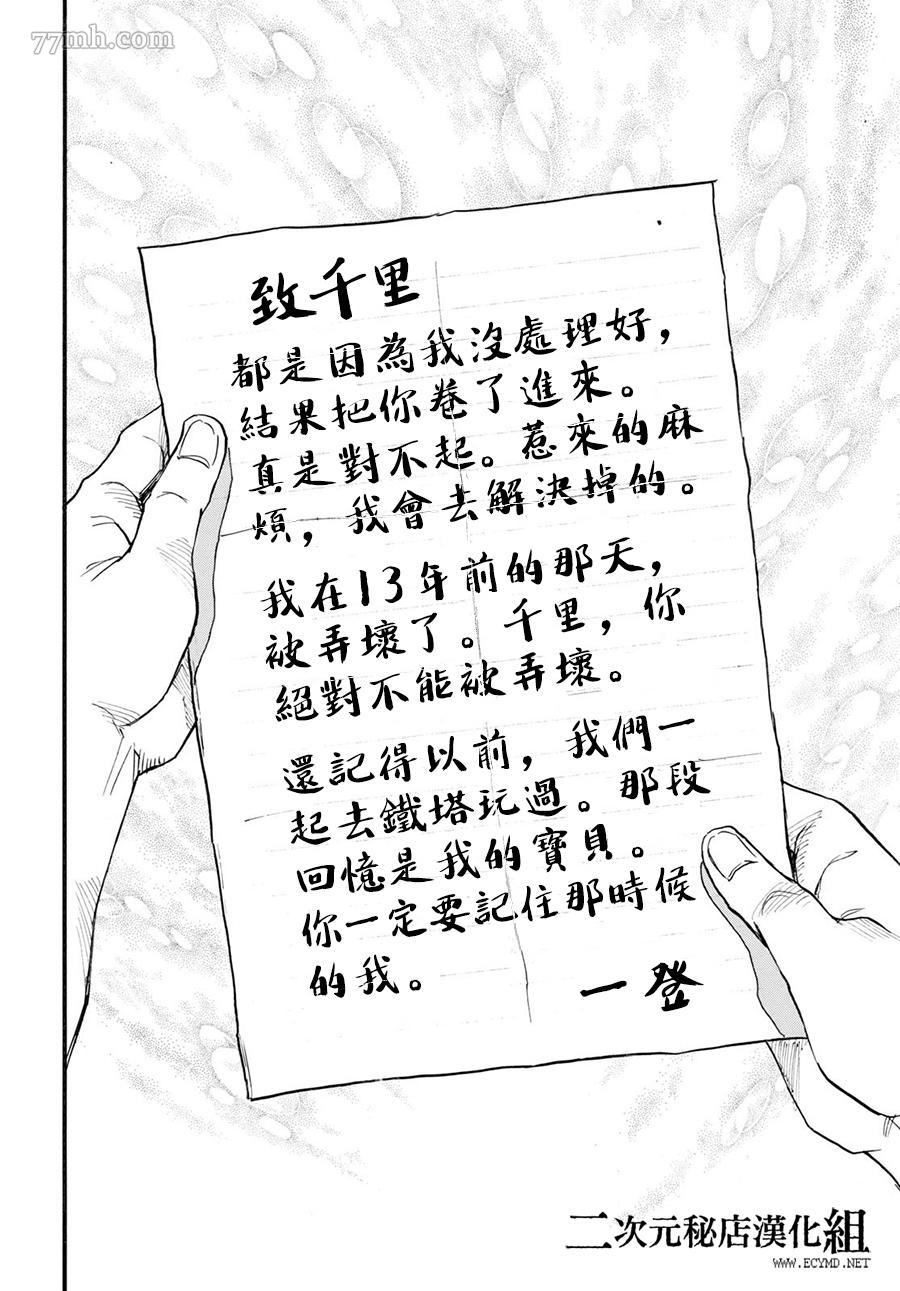 77mh.com
致千里
都是因為我沒處理好，
結果把你卷了進來。
真是對不起。惹來的麻
煩，我會去解決掉的。
我在13年前的那天，
被弄壞了。千里，你
絕對不能被弄壞。
還記得以前，我們一
起去鐵塔玩過。那段
回憶是我的寶貝。
你一定要記住那時候
的我。
一登
二次元秘店漢化組
WWW.ECYMD.NET